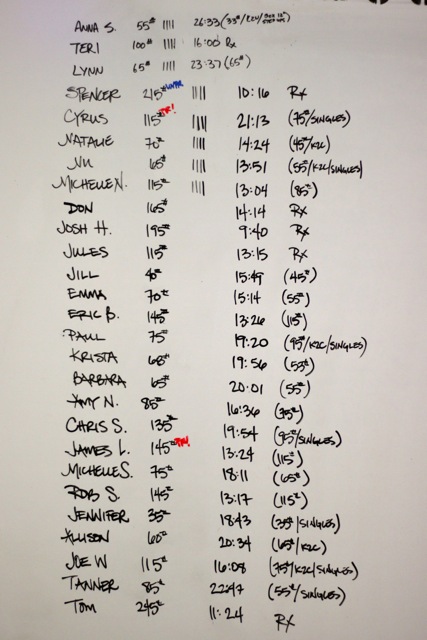 ANNA S. 55# |||| 26:33 (33#/
TERI 100# |||| 16:00 Rx
LYNN 65# |||| 23:37 (65#)
SPENCER 215# |||| 10:16 Rx
CYRUS 115# PR! |||| 21:13 (75#/SINGLES)
NATALIE 70# |||| 14:24 (45#/K2C)
65# |||| 13:51 (55#/K2C/SINGLES)
MICHELLE N. 115# |||| 13:04 (85#)
DON 165# 14:14 Rx
JOSH H. 195# 9:40 Rx
JULES 115# 13:15 Rx
JILL 15:49 (45#)
EMMA 70# 15:14 (55#)
ERIC B. 145# 13:26 (115#)
PAUL 75# 19:20 (95#/K2C/SINGLES)
KRISTA 68# 19:56 (55#)
BARBARA 65# 20:01 (55#)
AMY N. 85# 16:36 (75#)
CHRIS S. 135# 19:54 (95#/SINGLES)
JAMES L. 145# 13:24 (115#)
MICHELLE S. 75# 18:11 (65#)
ROB S. 145# 13:17 (115#)
JENNIFER 35# 18:43 (35#/SINGLES)
ALLISON 60# 20:34 (65#/K2C)
JOE W 115# 16:08 (75#/K2C/SINGLES)
TANNER 85# 22:47 (55#/SINGLES)
TOM 245# 11:24 Rx